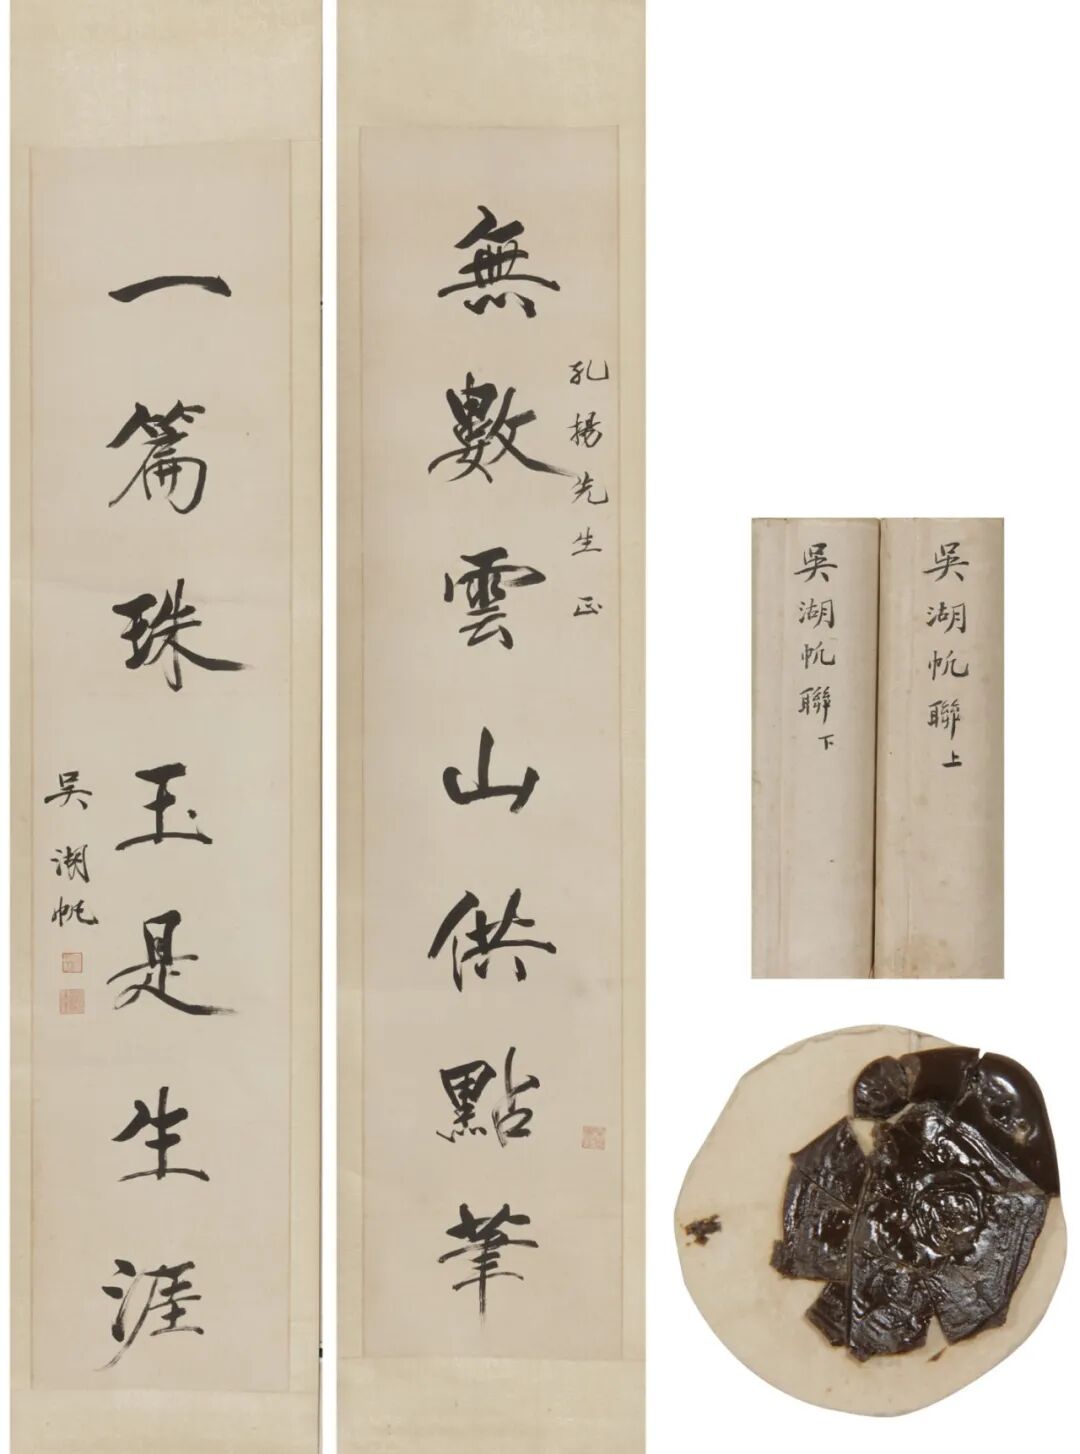 無數雲山供點筆
孔揚先生正
一篇珠玉是生涯
吳湖帆
吳湖帆聯上
吳湖帆聯下